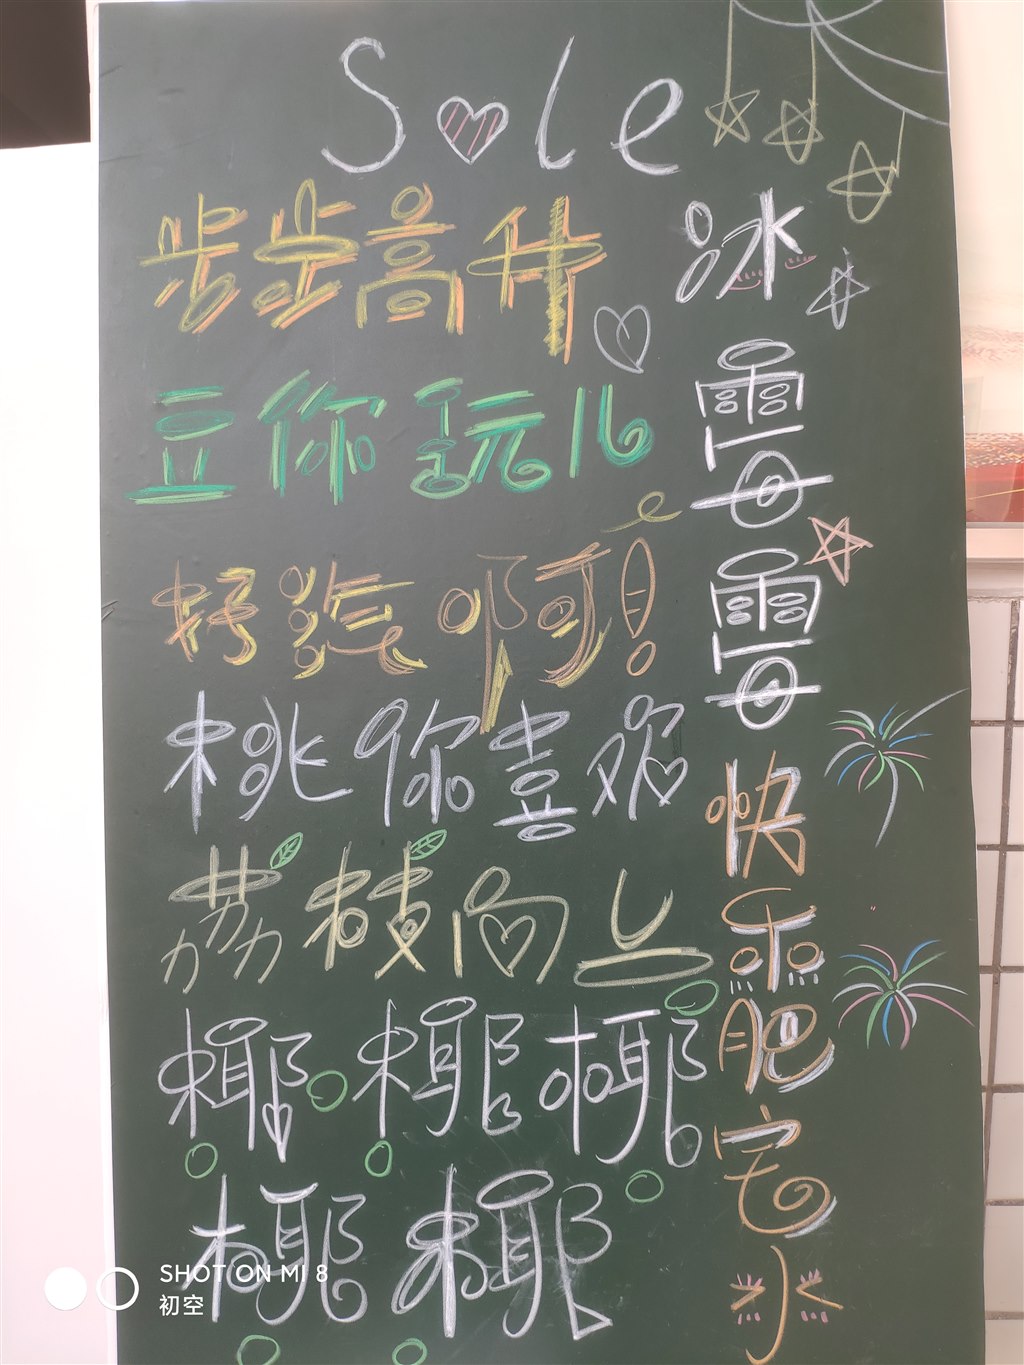 S♡le
步步高升
豆你玩儿
好汽啊!
桃你喜欢
荔枝向上
椰椰椰
椰椰
冰霉霉
快乐肥宅水
SHOT ON MI 8
初空